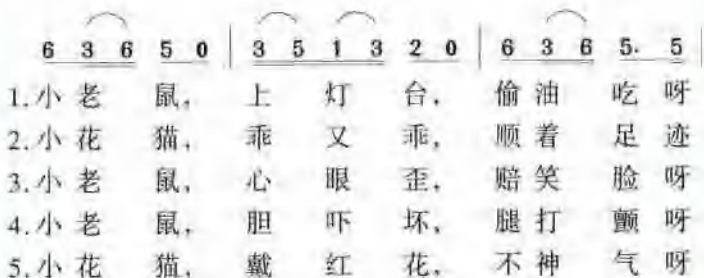 6 3 6 5 0 | 3 5 1 3 2 0 | 6 3 6 5. 5 |
1.小老鼠，上灯台，偷油吃呀
2.小花猫，乖又乖，顺着足迹
3.小老鼠，心眼歪，赔笑脸呀
4.小老鼠，胆吓坏，腿打颤呀
5.小花猫，戴红花，不神气呀